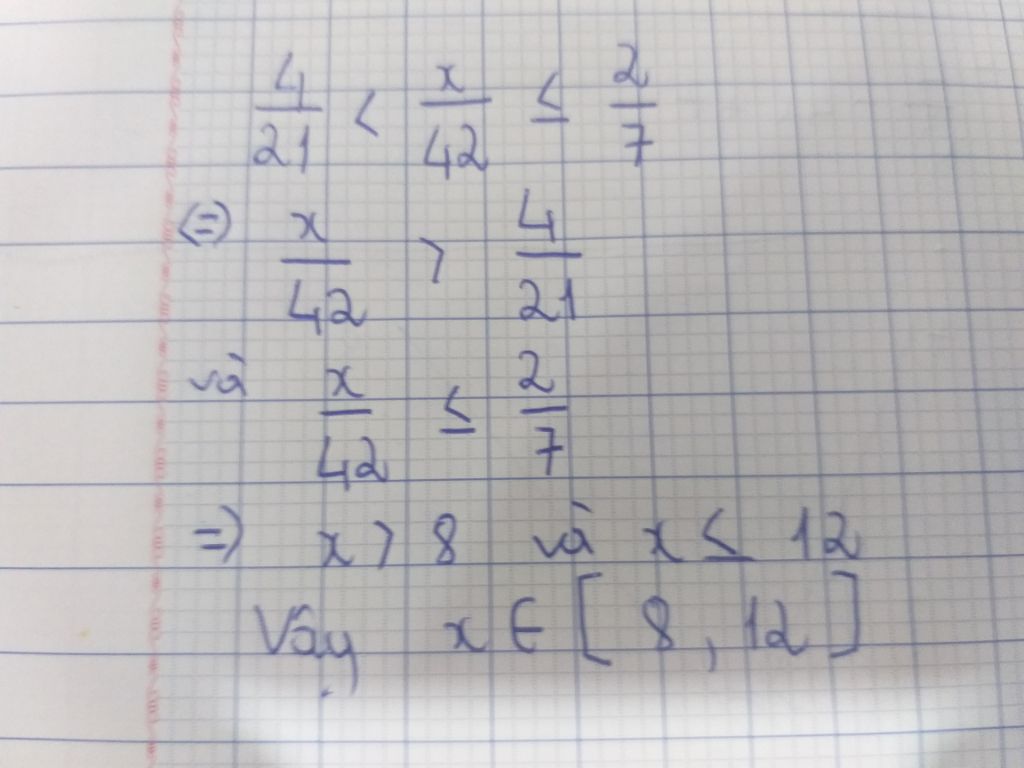 4/21 < x/42 ≤ 2/7
<=> x/42 > 4/21
và x/42 ≤ 2/7
=> x > 8 và x ≤ 12
Vậy x ∈ [ 8 , 12 ]